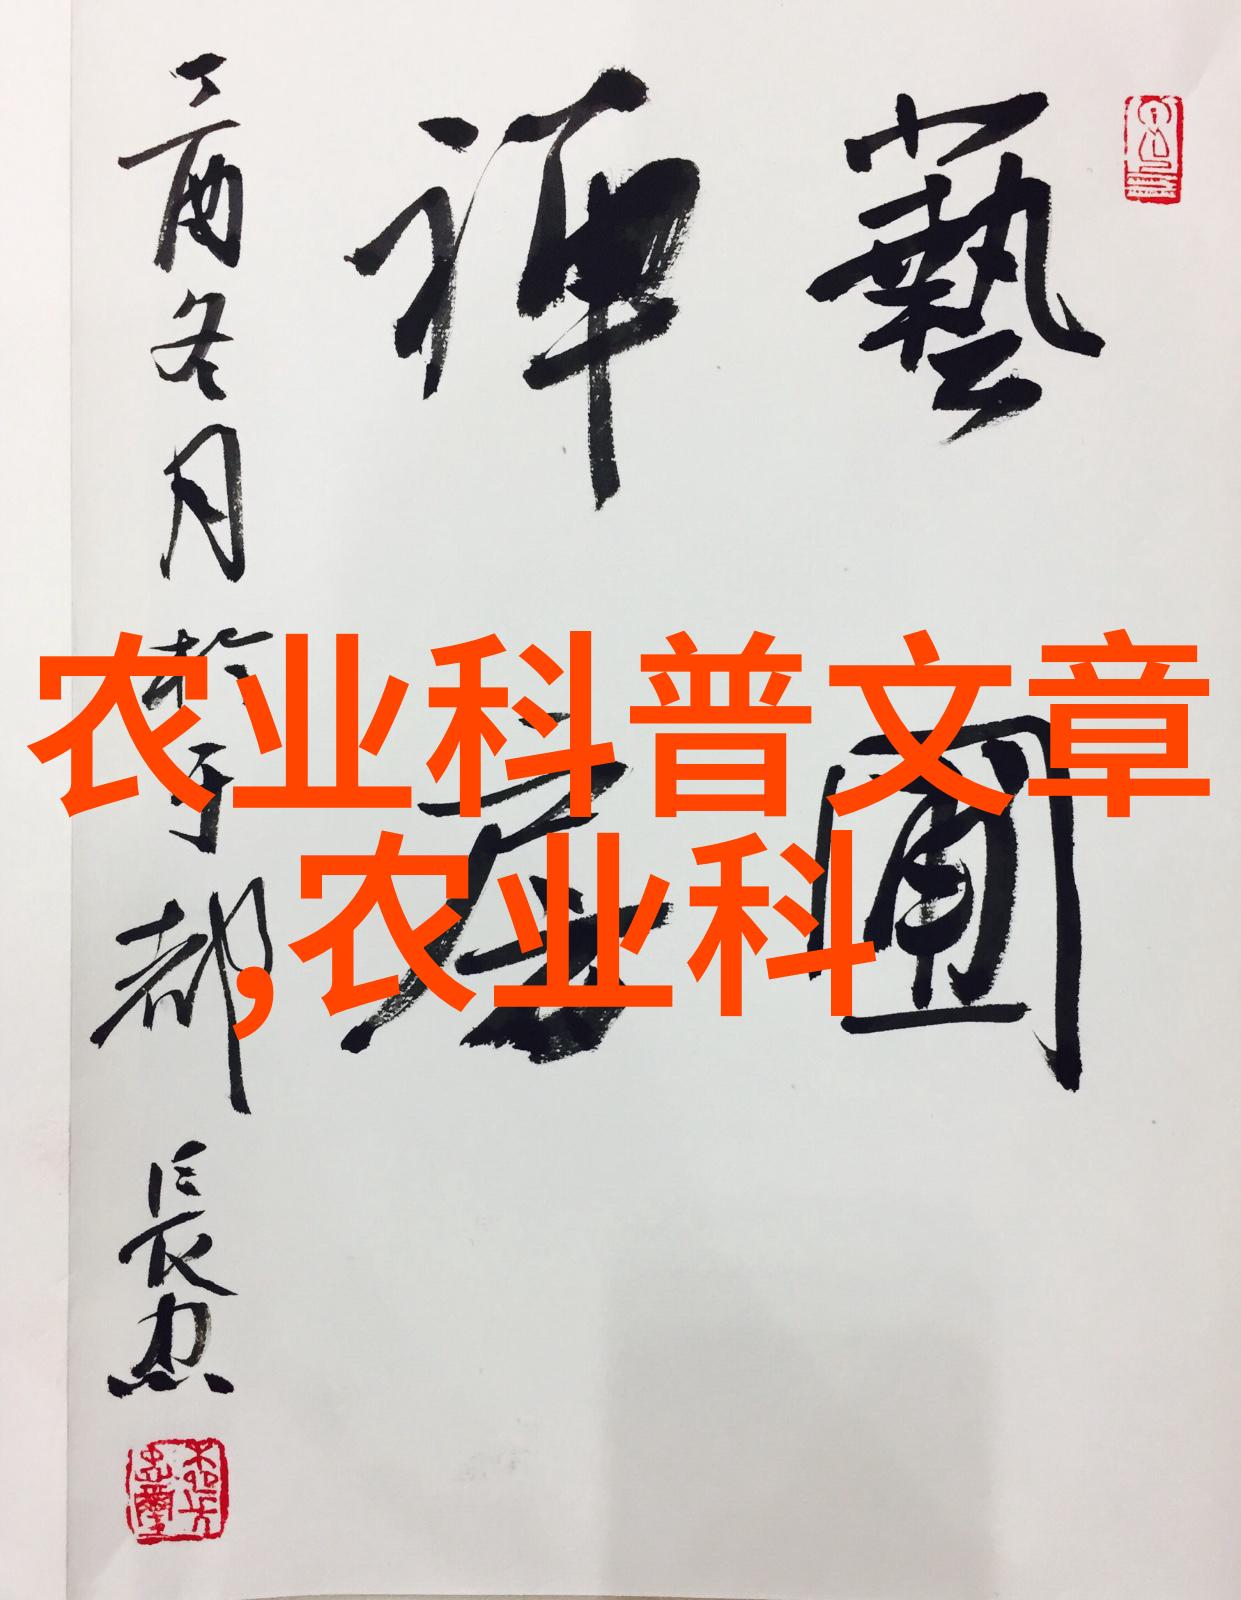 藝圃
禪房
丁酉冬月於
于都
長忠
农业科普文章
,农业科